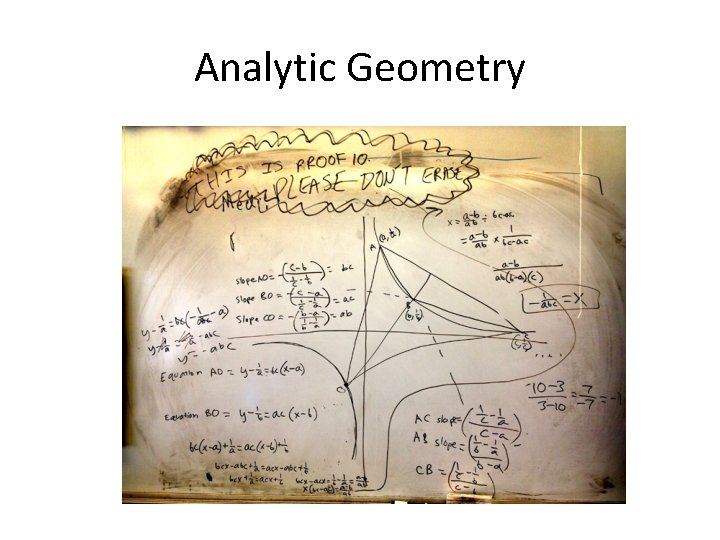 Analytic Geometry
THIS IS PROOF 10.
PLEASE DON'T ERASE
Medi
A (a, 1/a)
x = (a-b)/ab ÷ bc-ac
= (a-b)/ab × 1/(bc-ac)
(a-b)/(ab(b-a)(c))
-1/abc = X
slope AO = -((c-b)/(1/c - 1/b)) = bc
slope BO = -((c-a)/(1/c - 1/a)) = ac
slope CO = -((b-a)/(1/b - 1/a)) = ab
(b, 1/b)
C
(c, 1/c)
....
y - 1/a = bc(-1/abc - a)
y - 1/a = -1/a - abc
y = -abc
O
Equation AO = y - 1/a = bc(x-a)
Equation BO = y - 1/b = ac(x-b)
bc(x-a) + 1/a = ac(x-b) + 1/b
bcx - abc + 1/a = acx - abc + 1/b
bcx + 1/a = acx + 1/b
bcx - acx = 1/b - 1/a = (a-b)/ab
x(bc-ac) = (a-b)/ab
AC slope = ((1/c - 1/a)/(c-a))
AB slope = ((1/b - 1/a)/(b-a))
CB = ((1/c - 1/b)/
(-10-3)/(3-10) = 7/-7 = -1